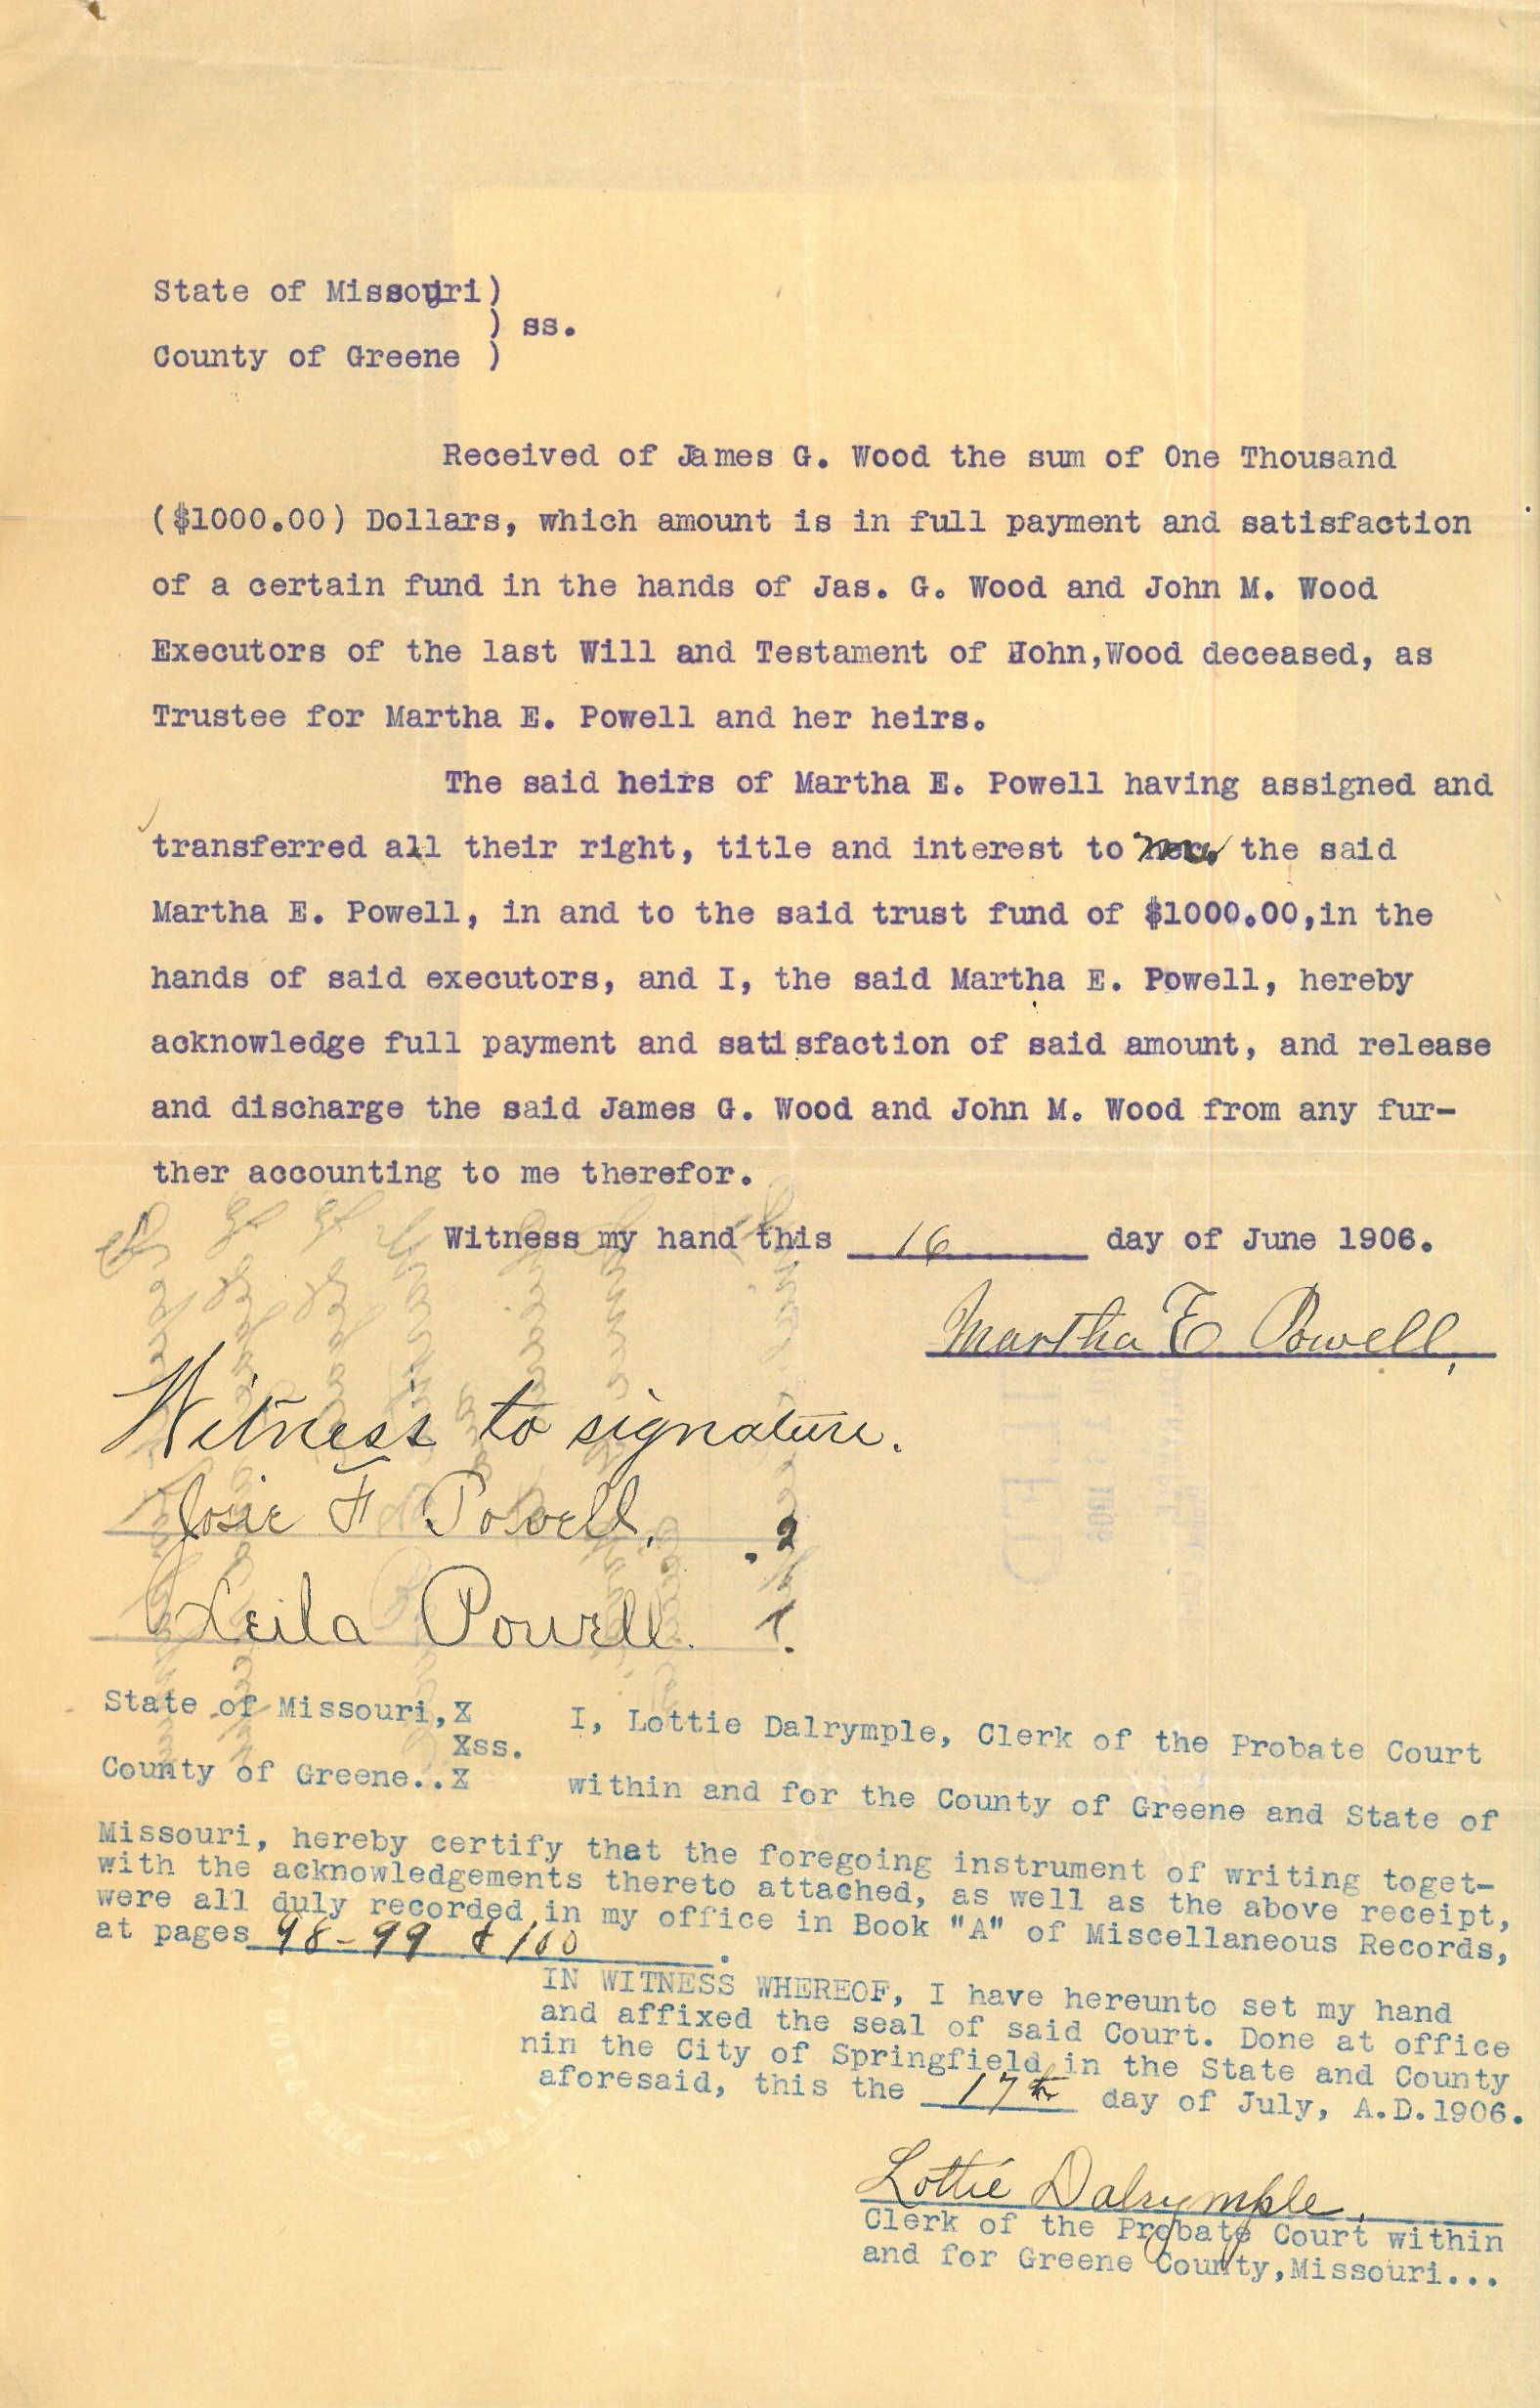 State of Missouri)
) ss.
County of Greene )
Received of James G. Wood the sum of One Thousand
($1000.00) Dollars, which amount is in full payment and satisfaction
of a certain fund in the hands of Jas. G. Wood and John M. Wood
Executors of the last Will and Testament of John,Wood deceased, as
Trustee for Martha E. Powell and her heirs.
The said heirs of Martha E. Powell having assigned and
transferred all their right, title and interest to the said
Martha E. Powell, in and to the said trust fund of $1000.00,in the
hands of said executors, and I, the said Martha E. Powell, hereby
acknowledge full payment and satisfaction of said amount, and release
and discharge the said James G. Wood and John M. Wood from any fur-
ther accounting to me therefor.
Witness my hand this 16 day of June 1906.
Martha E Powell,
Witness to signature.
Josie F Powell. .2
Leila Powell. 1.
State of Missouri,X I, Lottie Dalrymple, Clerk of the Probate Court
Xss.
County of Greene..X within and for the County of Greene and State of
Missouri, hereby certify that the foregoing instrument of writing toget-
with the acknowledgements thereto attached, as well as the above receipt,
were all duly recorded in my office in Book "A" of Miscellaneous Records,
at pages 98-99 & 100.
IN WITNESS WHEREOF, I have hereunto set my hand
and affixed the seal of said Court. Done at office
nin the City of Springfield in the State and County
aforesaid, this the 17th day of July, A.D.1906.
Lottie Dalrymple.
Clerk of the Probate Court within
and for Greene County,Missouri...